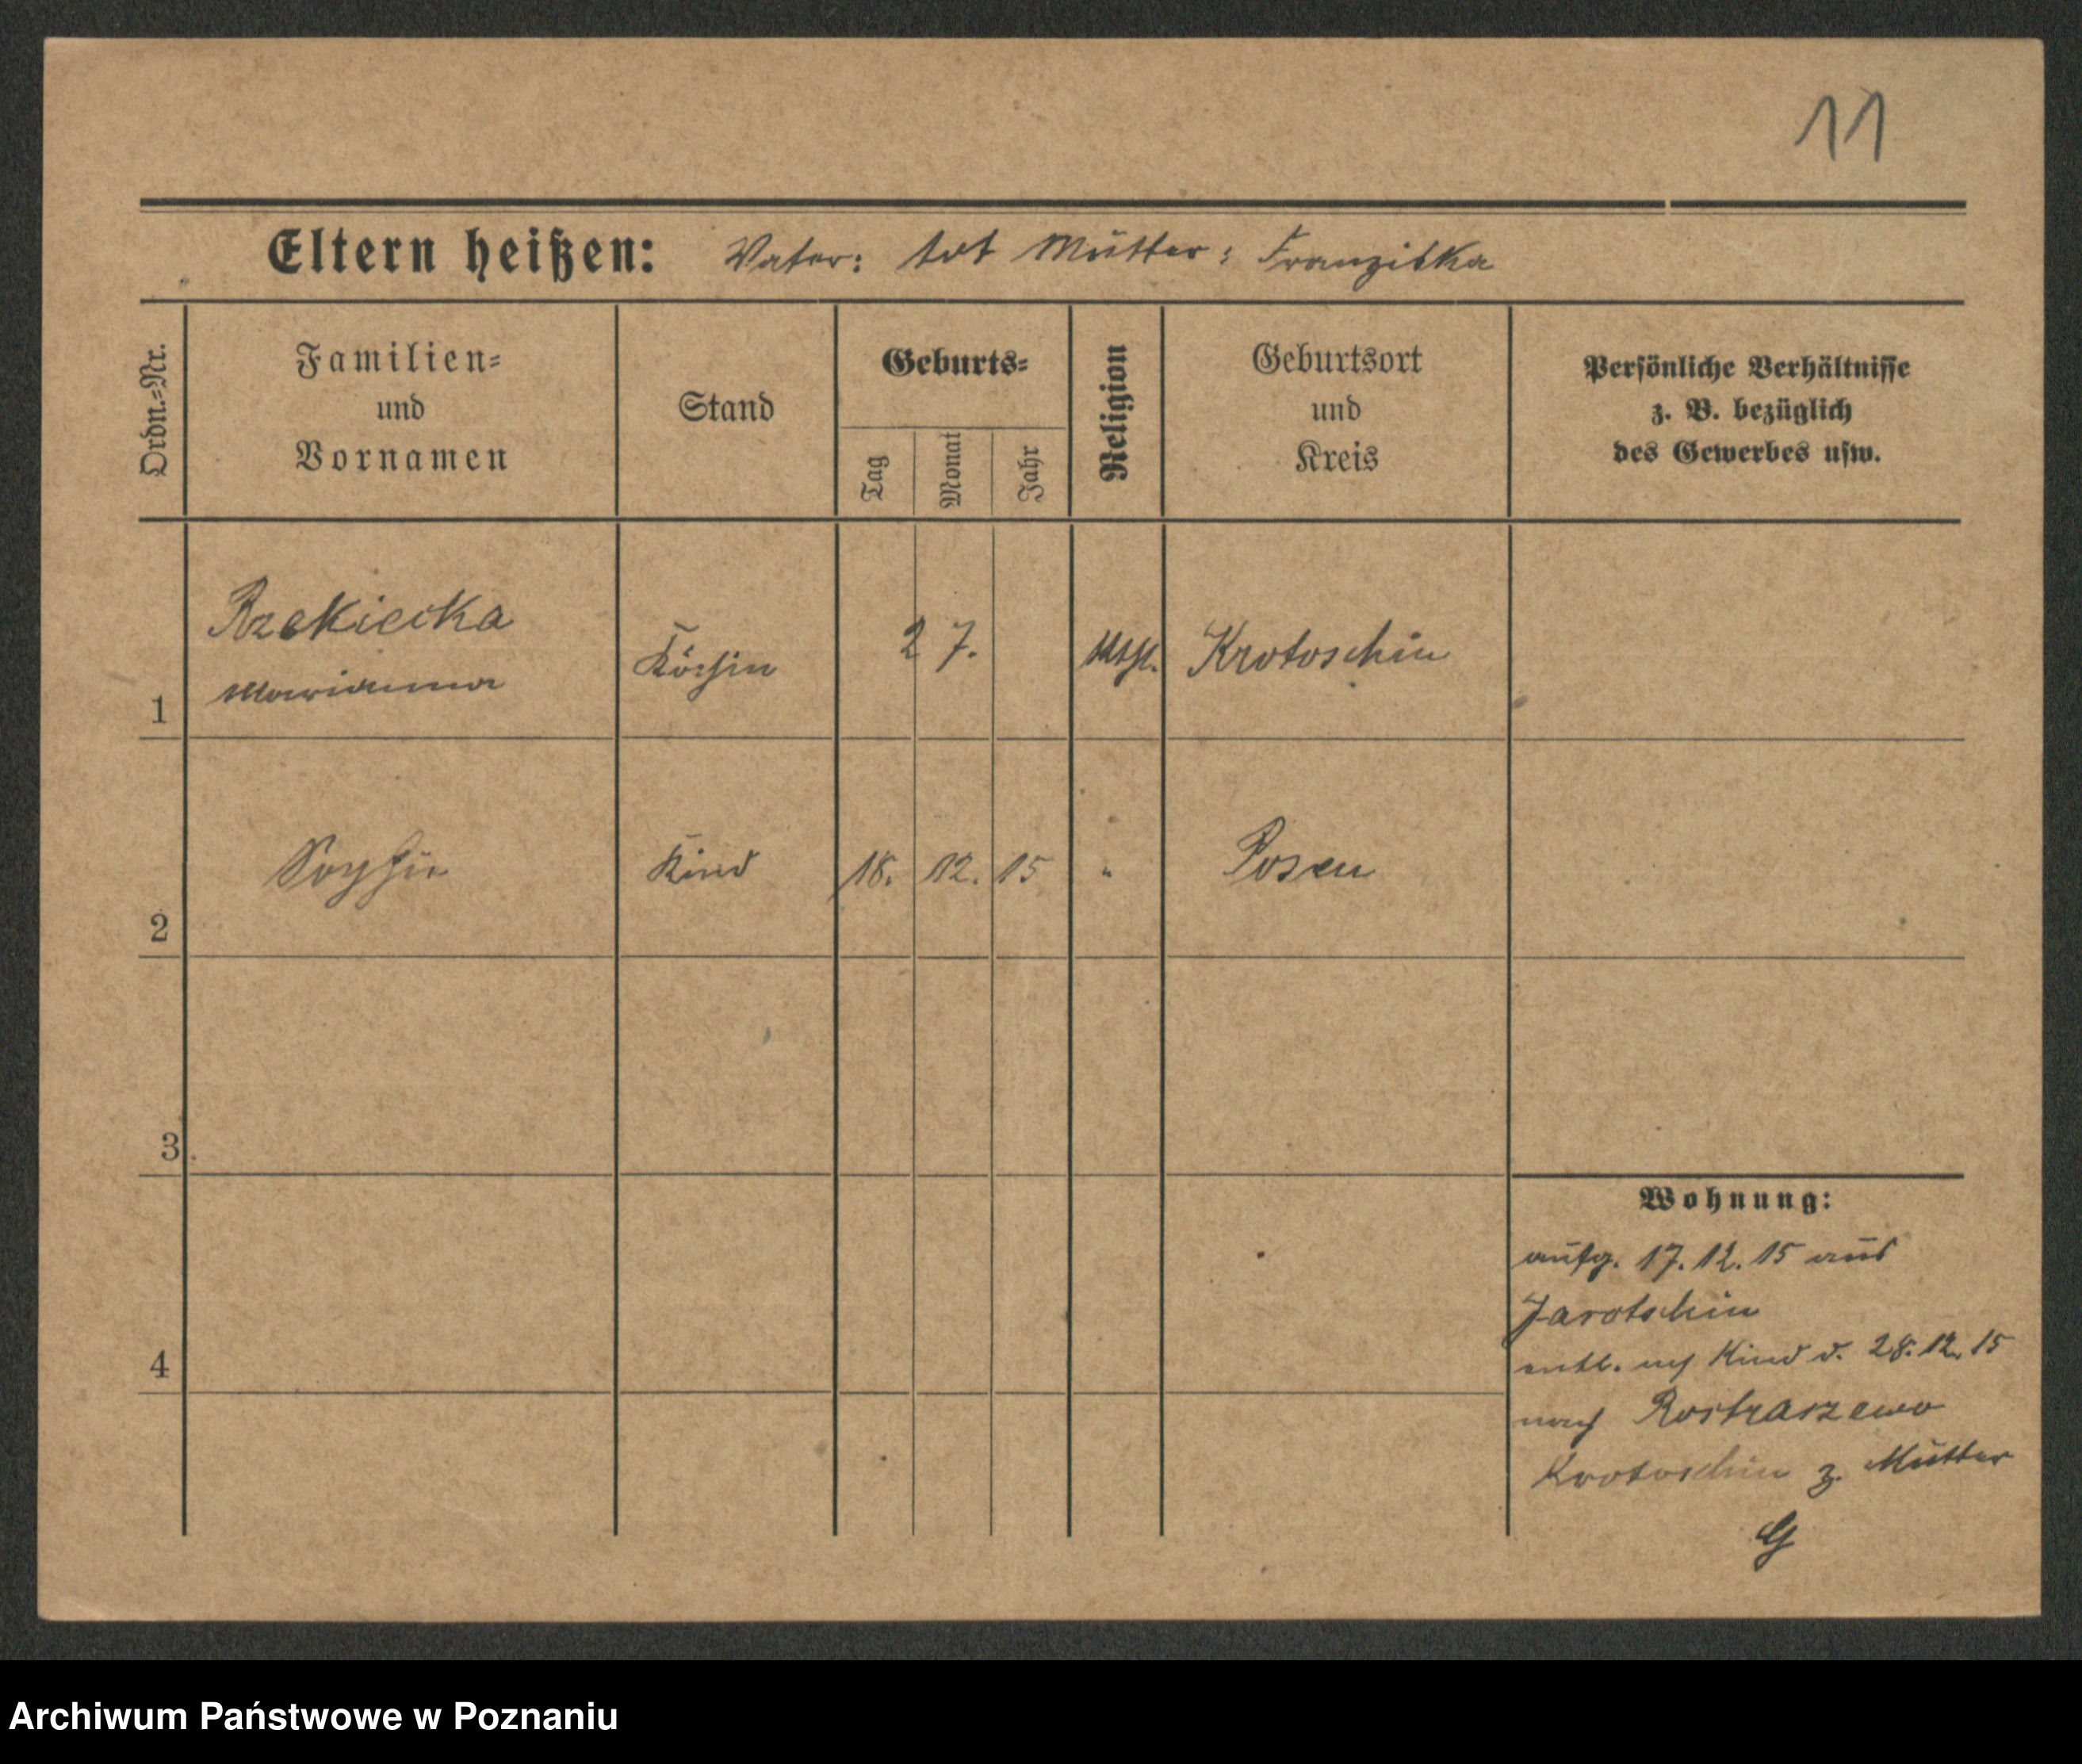 11
Eltern heißen: Vater: tot Mutter: Franziska
Ordn.=Nr.
Familien=
und
Vornamen
Stand
Geburts=
Tag
Monat
Jahr
Religion
Geburtsort
und
Kreis
Persönliche Verhältnisse
z. B. bezüglich
des Gewerbes usw.
1
Rzekiecka
Marianna
Köchin
27.
kth.
Krotoschin
2
Sophie
Kind
18. 12. 15
"
Posen
3
4
Wohnung:
aufg. 17.12.15 aus
Jarotschin
entl. Kind d. 28.12.15
nach
Krotoschin z. Mutter
Archiwum Państwowe w Poznaniu